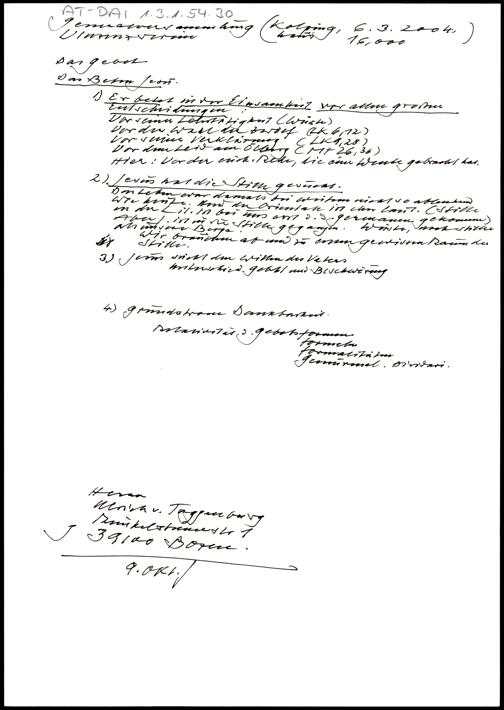 AT-DAI 1.3.1.54.30
Generalversammlung (Kolping, 6.3.2004.)
Vinzenzverein haus 16,000
Das Gebet
Das Beten Jesu.
1) Er betet in der Einsamkeit vor allen großen
Entscheidungen:
Vor seiner Lehrtätigkeit (Wüste)
Vor der Wahl der Zwölf (Lk 6,12)
Vor seiner Verklärung (Lk 9,28)
Vor dem Leid am Ölberg (Mt 26,36)
Hier: Vor der eucharist. Rede, die eine Wende gebracht hat.
2) Jesus hat die Stille gesucht.
Das Leben war damals bei weitem nicht so ablenkend
wie heute. Aber der Orientale ist eher laut. (Stille
in der Lit. ist bei uns erst v. d. Germanen gekommen)
Aber J. ist in die Stille gegangen. Wüste, noch stiller
als unsere Berge.
Wir brauchen ab und zu einen gewissen Raum der
Stille.
3) Jesus sucht den Willen des Vaters
Unterschied Gebet und Beschwörung
4) Grundstrom Dankbarkeit.
Relativität d. Gebetsformen
formeln
formalitäten
Gemurmel.
Herrn
Ulrich v. Toggenburg
Runkelsteinerstr 1
39100 Bozen.
9. Okt.